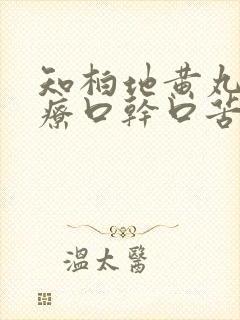 知柏地黄丸
療口幹口苦
溫太醫